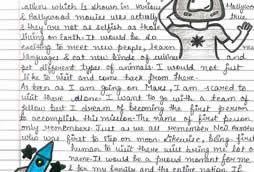 which is shown in various
& Bollywood movies was actually true.
& they are not as selfish as those
living on Earth. It would be so
exciting to meet new people, learn
languages & eat new kinds of cuisines and
get different types of animals. I would not just
like to visit and come back from there.
As soon as I am going on Mars, I am scared to
visit there alone. I want to go with a team of
but I dream of becoming the first person
to accomplish this mission. The name of first person
only remembers. Just as we all remember Neil
who was first to step on moon. Likewise, being first
human to visit there will bring me lot of
name. It would be a proud moment for me
for my family and the entire nation. If